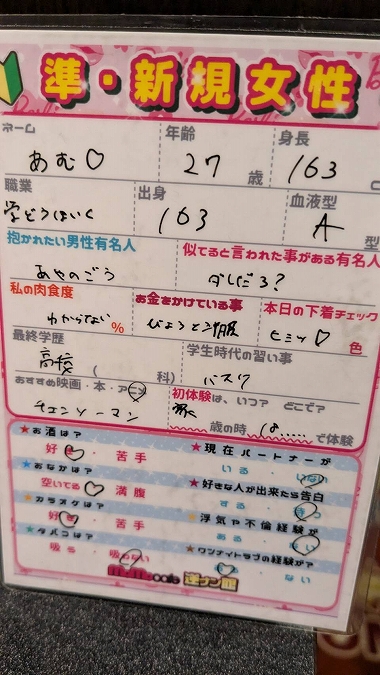 準・新規女性
ネーム 年齢 身長
あむ♡ 27 歳 163 c
職業 出身 血液型
学どうほいく 163 A 型
抱かれたい男性有名人 似てると言われた事がある有名人
あやのごう ダレだろ?
私の肉食度 お金をかけている事 本日の下着チェック
わからない % びようと洋服 ヒミツ♡ 色
最終学歴 学生時代の習い事
高校 ( 科) バスケ
おすすめ映画・本・アニメ 初体験は、いつ? どこで?
チェンソーマン 歳の時 は…… で体験
★お酒は? ★現在パートナーが
好き・苦手 いる・いない
★おなかは? ★好きな人が出来たら告白
空いてる・満腹 する・待つ
★カラオケは? ★浮気や不倫経験が
好き・苦手 ある・ない
★タバコは? ★ワンナイトラブの経験が?
吸う・吸わない ・ない
MoMo cafe 逢ナン館